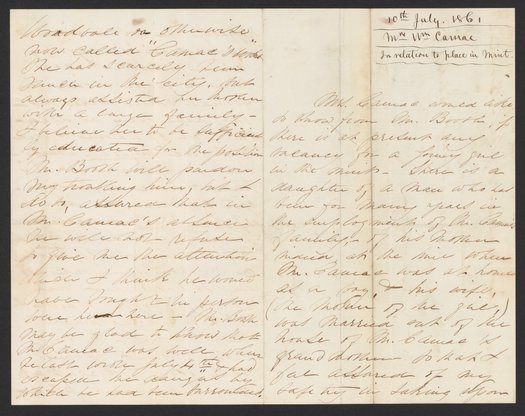 10th July. 1861
Mrs Wm Camac
In relation to place in Mint.
Mrs Camac would ask
to know from Mr. Booth if
there is at present any
vacancy for a young girl
in the mint - There is a
daughter of a man who has
been for many years in
the employment of Mr. Camac's
family - of his Mother
when
Mr. Camac was at home
as a boy, & his wife,
(the mother of the girl,)
was married out of the
house of Mr. Camac's
grandmother so that I
feel assured of my
safety in taking upon
Woodvale or otherwise
now called "Camac's Woods"
She has scarcely been
much in the city, but
always assisted her mother
with a large family -
I believe her to be sufficient
ly educated for the position
Mr. Booth will pardon
my troubling him, but I
do so, assured that in
Mr. Camac's absence
he will not refuse
to give me the attention
which I think he would
have sought in person
were he here - Mr. Booth
may be glad to know that
Mr Camac was well when
he last wrote July 4th & had
escaped the dangers by
which he had been surrounded